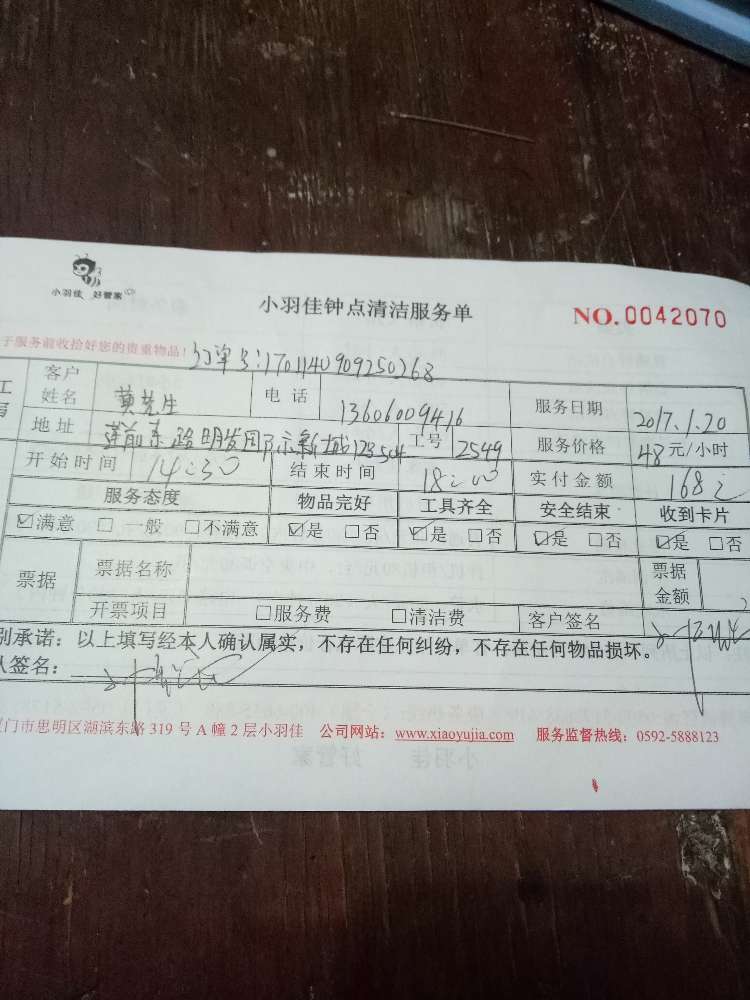 小羽佳 好管家
小羽佳钟点清洁服务单
NO. 0042070
于服务前收拾好您的贵重物品!
订单号:1701140909250268
客户姓名 黄先生 电话 13606009416 服务日期 2017.1.20
地址 莲前东路明发国际新城123504 工号 2549 服务价格 48元/小时
开始时间 14:30 结束时间 18:00 实付金额 168元
服务态度 物品完好 工具齐全 安全结束 收到卡片
☑满意 □一般 □不满意 ☑是 □否 ☑是 □否 ☑是 □否 ☑是 □否
票据 票据名称 票据金额
开票项目 □服务费 □清洁费 客户签名
别承诺：以上填写经本人确认属实，不存在任何纠纷，不存在任何物品损坏。
人签名：
门市思明区湖滨东路 319 号 A 幢 2 层小羽佳 公司网站：www.xiaoyujia.com 服务监督热线：0592-5888123